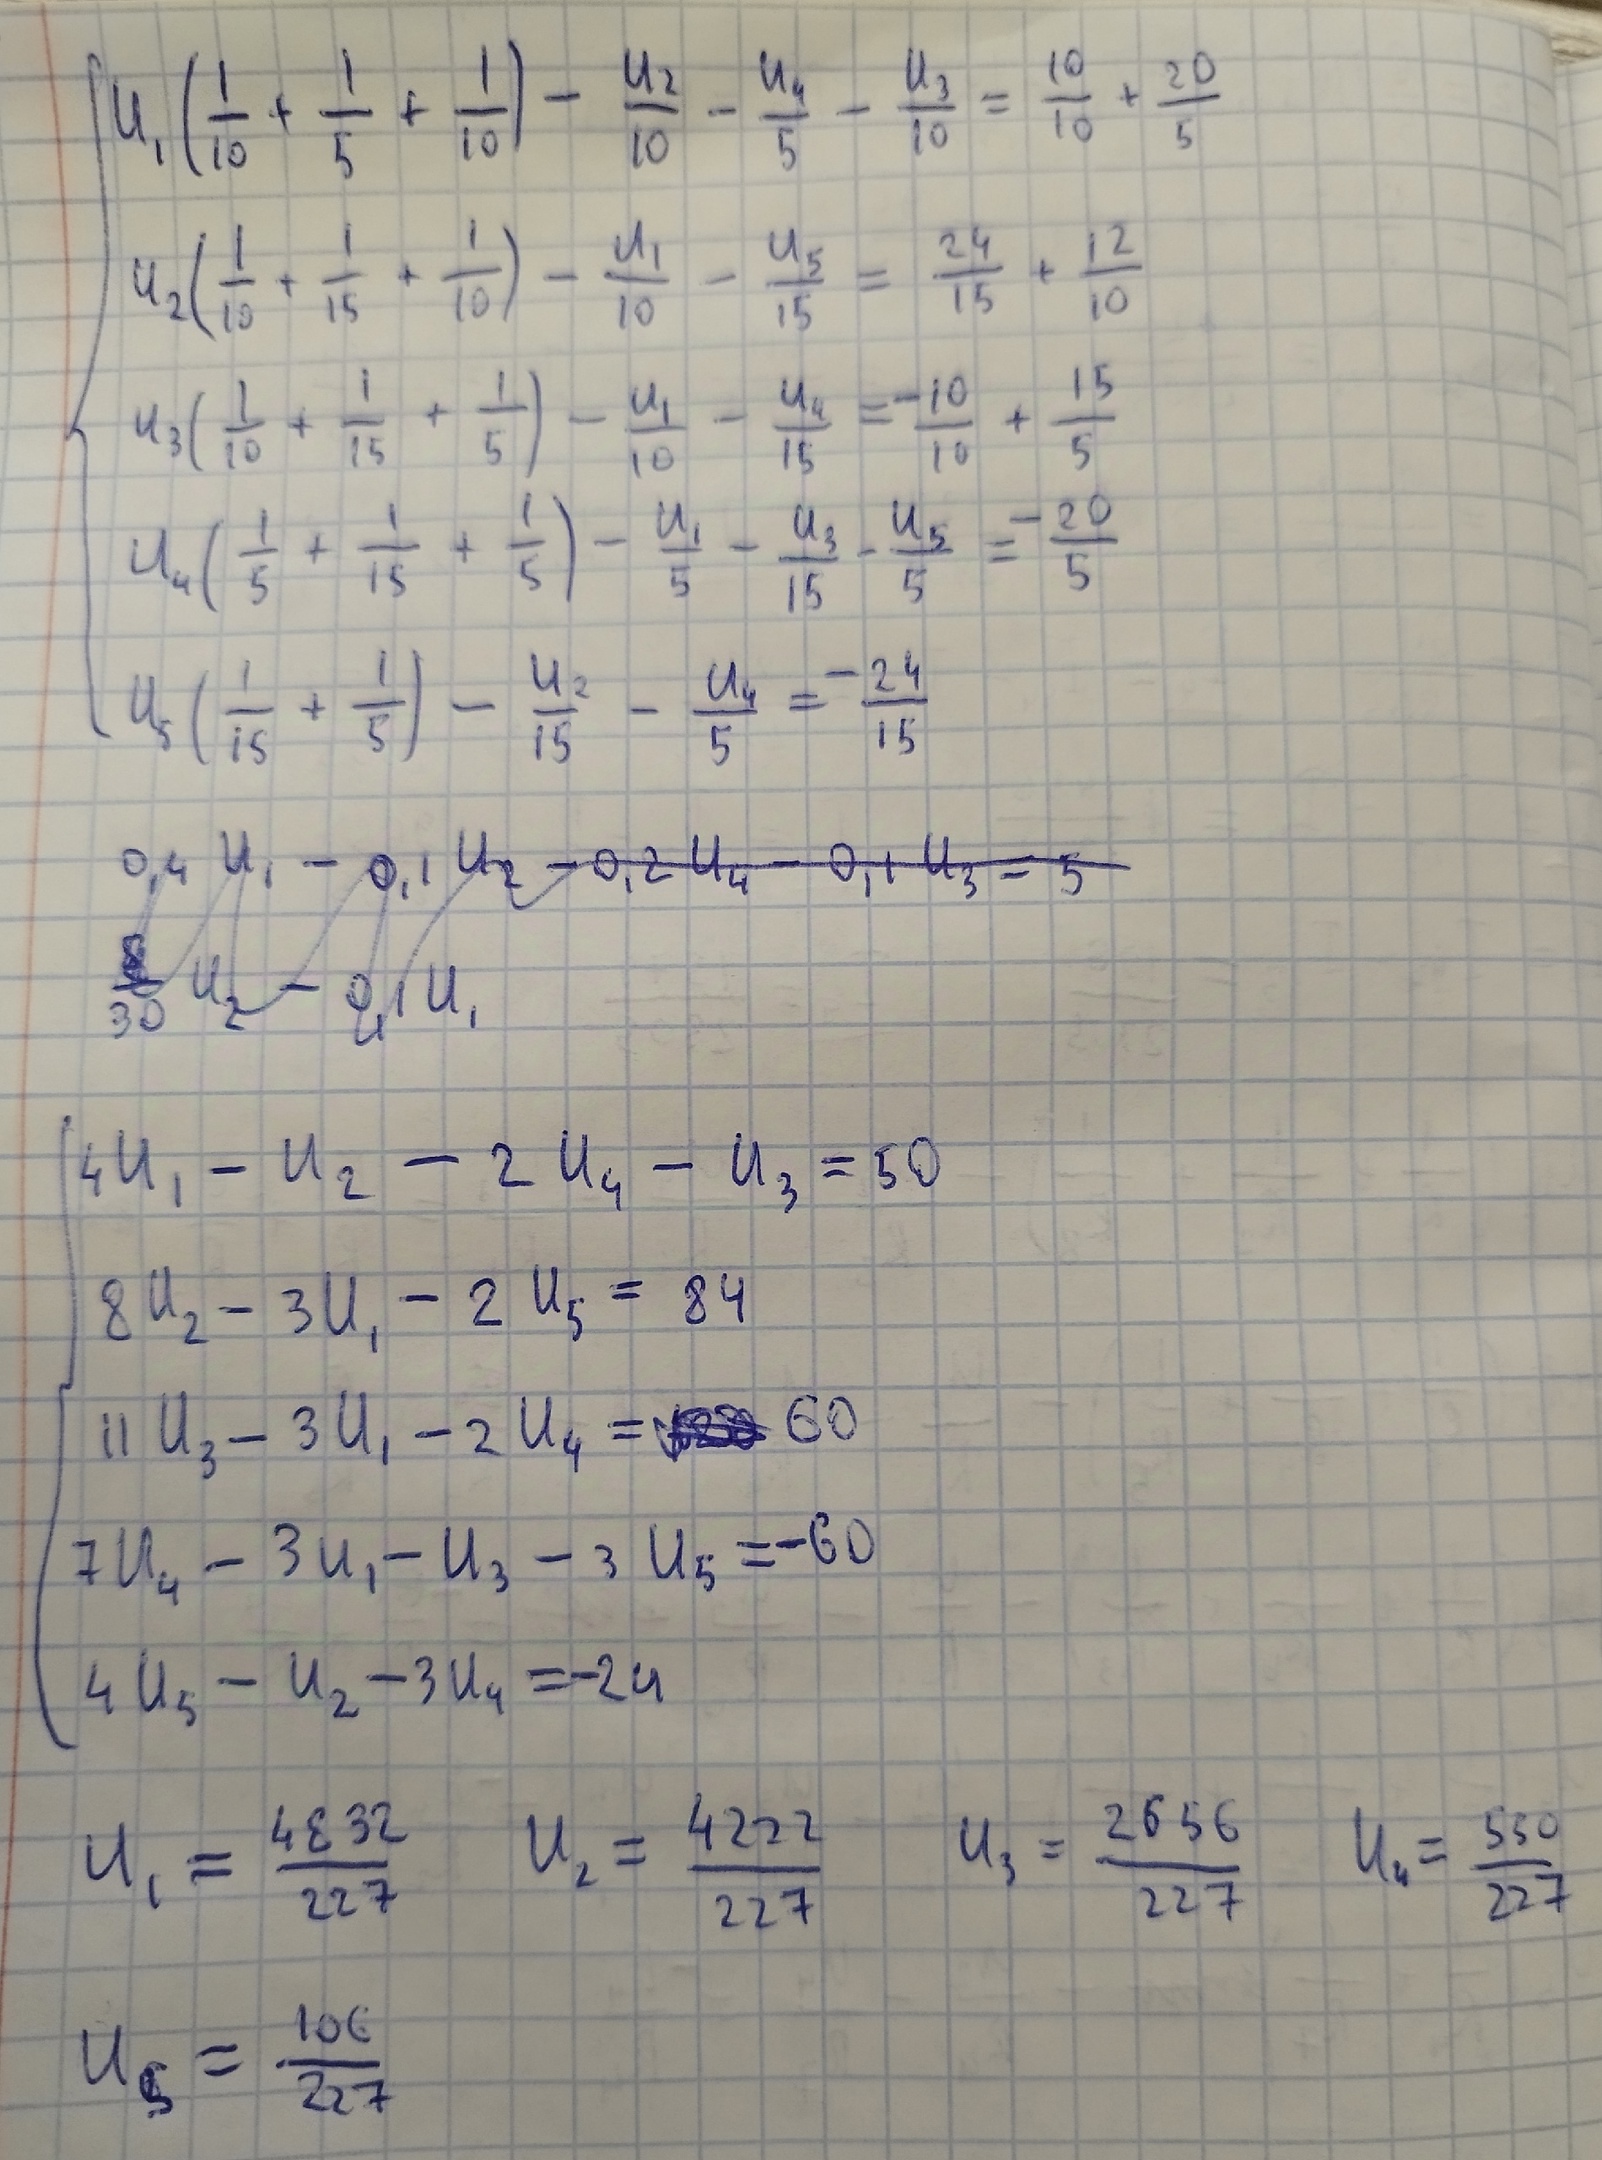 U₁(1/10 + 1/5 + 1/10) - U₂/10 - U₄/5 - U₃/10 = 10/10 + 20/5
U₂(1/10 + 1/15 + 1/10) - U₁/10 - U₅/15 = 24/15 + 12/10
U₃(1/10 + 1/15 + 1/5) - U₁/10 - U₄/15 = -10/10 + 15/5
U₄(1/5 + 1/15 + 1/5) - U₁/5 - U₃/15 - U₅/5 = -20/5
U₅(1/15 + 1/5) - U₂/15 - U₄/5 = -24/15
0,4 U₁ - 0,1 U₂ - 0,2 U₄ - 0,1 U₃ = 5
8/30 U₂ - 0,1 U₁
4U₁ - U₂ - 2U₄ - U₃ = 50
8U₂ - 3U₁ - 2U₅ = 84
11U₃ - 3U₁ - 2U₄ = 60
7U₄ - 3U₁ - U₃ - 3U₅ = -60
4U₅ - U₂ - 3U₄ = -24
U₁ = 4832/227 U₂ = 4222/227 U₃ = 2656/227 U₄ = 550/227
U₅ = 106/227